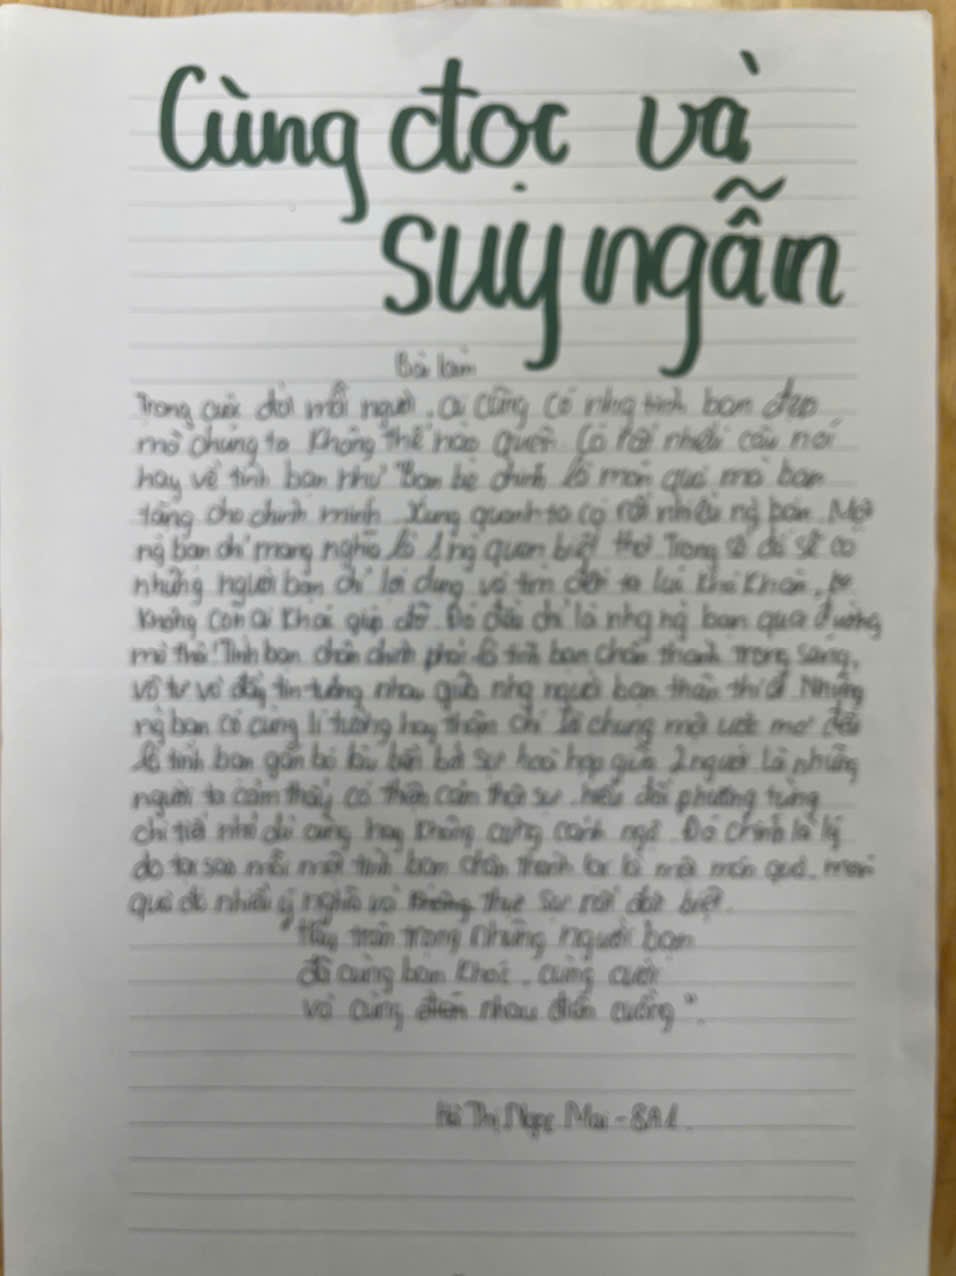 Cùng đọc và
suy ngẫm
Bài làm
Trong cuộc đời mỗi người, ai cũng có nhg tình bạn đẹp
mà chúng ta không thể nào quên. Có rất nhiều câu nói
hay về tình bạn như "Bạn bè chính là món quà mà bạn
tặng cho chính mình. Xung quanh ta có rất nhiều ng bạn. Một
ng bạn chỉ mang nghĩa là 1 ng quen biết thôi. Trong số đó sẽ có
những người bạn chỉ lợi dụng và tìm đến ta lúc khó khăn,
không còn ai khác giúp đỡ. Đó đều chỉ là nhg ng bạn qua đường
mà thôi! Tình bạn chân chính phải là tình bạn chân thành, trong sáng,
vô tư và đầy tin tưởng nhau giữa nhg người bạn thân thiết. Những
ng bạn có cùng lí tưởng hay thậm chí là chung một ước mơ đều
là tình bạn gắn bó lâu bền bởi sự hoà hợp giữa 2 người. Là những
người ta cảm thấy có thiện cảm thật sự, hiểu đối phương từng
chi tiết nhỏ dù cùng hay không cùng cảnh ngộ. Đó chính là lý
do tại sao mỗi một tình bạn chân thành lại là một món quà, món
quà đó nhiều ý nghĩa và không thực sự rất đặc biệt.
"Hãy trân trọng những người bạn
đã cùng bạn khóc, cùng cười
và cùng điên nhau điên cuồng".
Thị Ngọc Mai - 8A1.